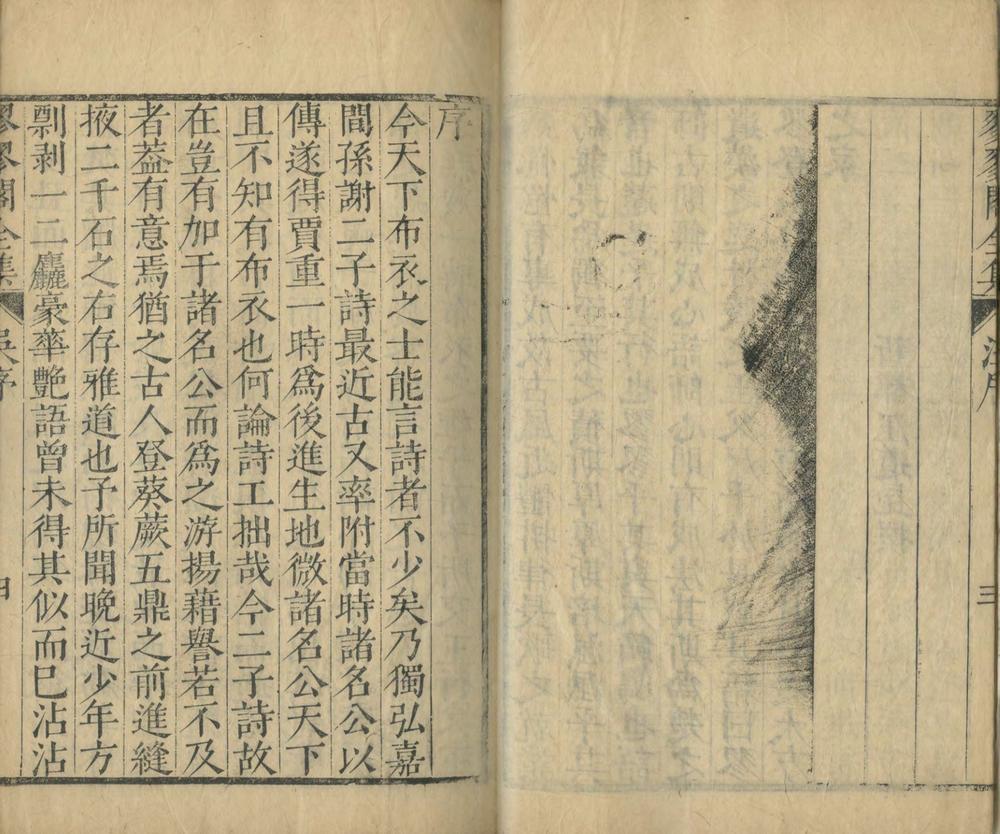 蓼蓼閣全集
序
三
序
今天下布衣之士能言詩者不少矣乃獨弘嘉
間孫謝二子詩最近古又率附當時諸名公以
傳遂得賈重一時爲後進生地微諸名公天下
且不知有布衣也何論詩工拙哉今二子詩故
在豈有加于諸名公而爲之游揚藉譽若不及
者葢有意焉猶之古人登葵蕨五鼎之前進縫
掖二千石之右存雅道也予所聞晚近少年方
剽剥一二麤豪華艷語曾未得其似而巳沾沾
蓼蓼閣全集
吳序
四